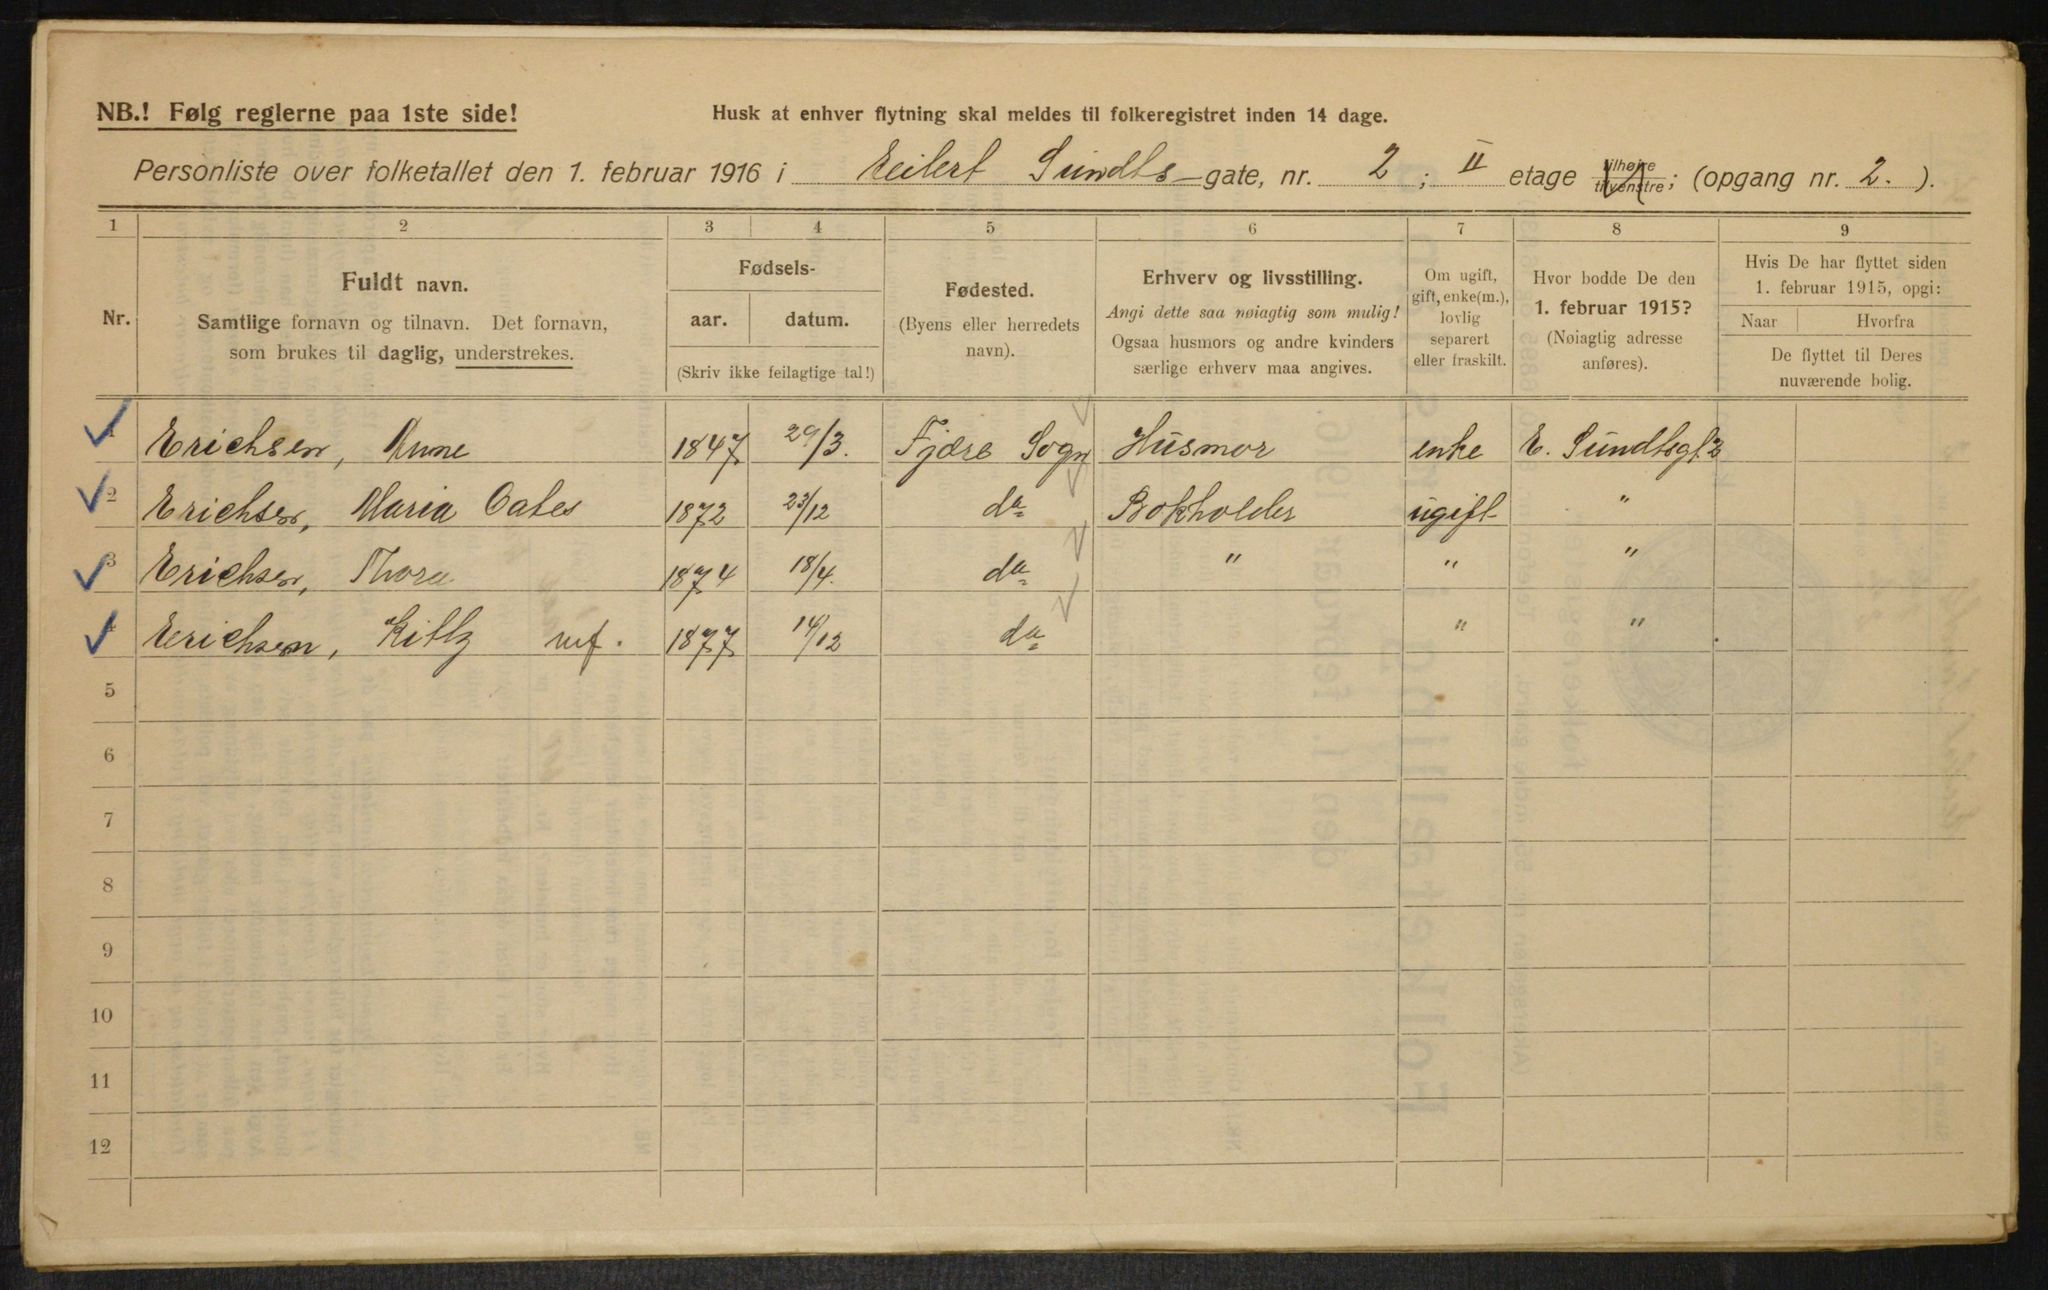 NB.! Følg reglerne paa 1ste side!
Husk at enhver flytning skal meldes til folkeregistret inden 14 dage.
Personliste over folketallet den 1. februar 1916 i Eilert Sundts gate, nr. 2 ; II etage tilhøire tilvenstre; (opgang nr. 2. ).
1 2 3 4 5 6 7 8 9
Nr.
Fuldt navn.
Samtlige fornavn og tilnavn. Det fornavn,
som brukes til daglig, understrekes.
Fødsels-
aar. datum.
(Skriv ikke feilagtige tal!)
Fødested.
(Byens eller herredets
navn).
Erhverv og livsstilling.
Angi dette saa nøiagtig som mulig!
Ogsaa husmors og andre kvinders
særlige erhverv maa angives.
Om ugift,
gift, enke(m.),
lovlig
separert
eller fraskilt.
Hvor bodde De den
1. februar 1915?
(Nøiagtig adresse
anføres).
Hvis De har flyttet siden
1. februar 1915, opgi:
Naar Hvorfra
De flyttet til Deres
nuværende bolig.
1 Erichsen, Anne 1847 29/3. Fjære Sogn Husmor enke E. Sundtsgt 2
2 Erichsen, Maria Cates 1872 23/12 do Bokholder ugift "
3 Erichsen, Thora 1874 18/4. do " " "
4 Erichsen, Kitty 1877 14/12 do " "
5
6
7
8
9
10
11
12